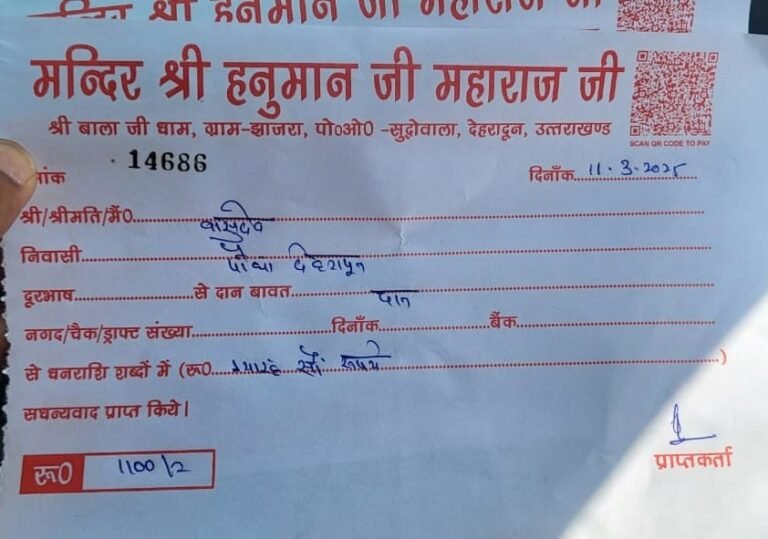 मन्दिर श्री हनुमान जी महाराज जी
मन्दिर श्री हनुमान जी महाराज जी
श्री बाला जी धाम, ग्राम-झाजरा, पो०ओ० -सुद्धोवाला, देहरादून, उत्तराखण्ड
SCAN QR CODE TO PAY
14686
दिनाँक 11.3.2025
श्री/श्रीमति/मै० वासुदेव
निवासी पौंधा देहरादून
दूरभाष से दान बावत दान
नगद/चैक/ड्राफ्ट संख्या दिनाँक बैंक
से धनराशि शब्दों में (रू० ग्यारह सौ रूपये)
सधन्यवाद प्राप्त किये।
रू० 1100/2
प्राप्तकर्ता